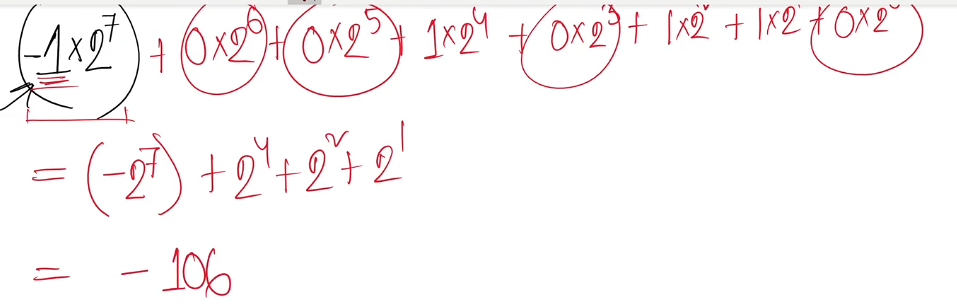 -1×2⁷ + 0×2⁶ + 0×2⁵ + 1×2⁴ + 0×2³ + 1×2² + 1×2 + 0×2
= (-2⁷) + 2⁴ + 2² + 2¹
= - 106